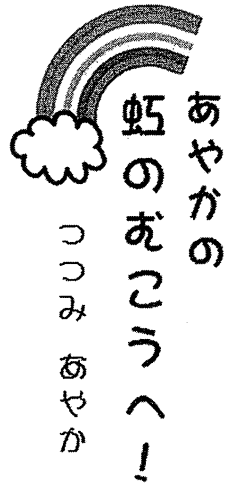 あやかの
虹のむこうへ！
つつみ あやか